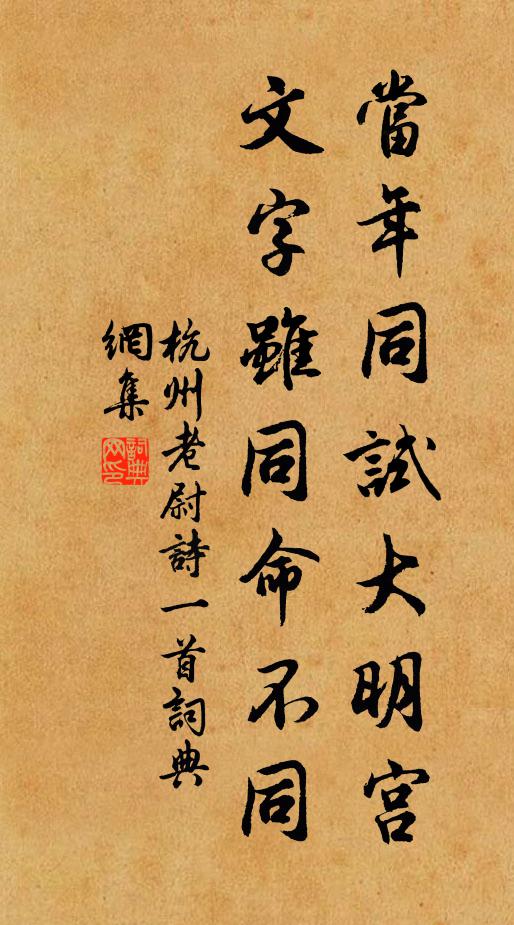 當年同試大明宮
文字雖同命不同
杭州老尉詩一首詞典
網集
詞典
網印